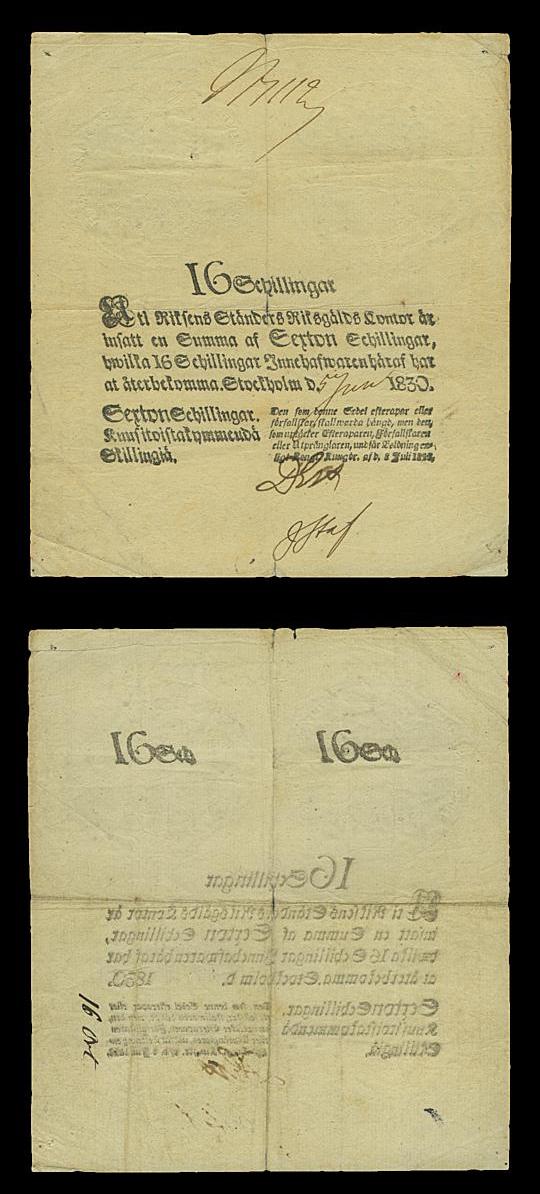 16 Schillingar
Uti Riksens Ständers Riksgälds Contor är
insatt en Summa af Sexton Schillingar,
hwilka 16 Schillingar Innehafwaren häraf har
at återbekomma. Stockholm d. 5 Juni 1830.
Sexton Schillingar.
Kuusitoistakymmendä
Skillingiä.
Den som denne Sedel efterapar eller
förfalskar, skall warda hängd; men den,
som uptäcker Efteraparen, Förfalskaren
eller Utprånglaren, undfår Belöning en-
ligt Kongl. Kungör. af d. 8 Juli
16 Sch
16 Sch
16 Schillingar
Uti Riksens Ständers Riksgälds Contor är
insatt en Summa af Sexton Schillingar,
hwilka 16 Schillingar Innehafwaren häraf har
at återbekomma. Stockholm d. 1830.
Sexton Schillingar.
Kuusitoistakymmendä
Skillingiä.
16